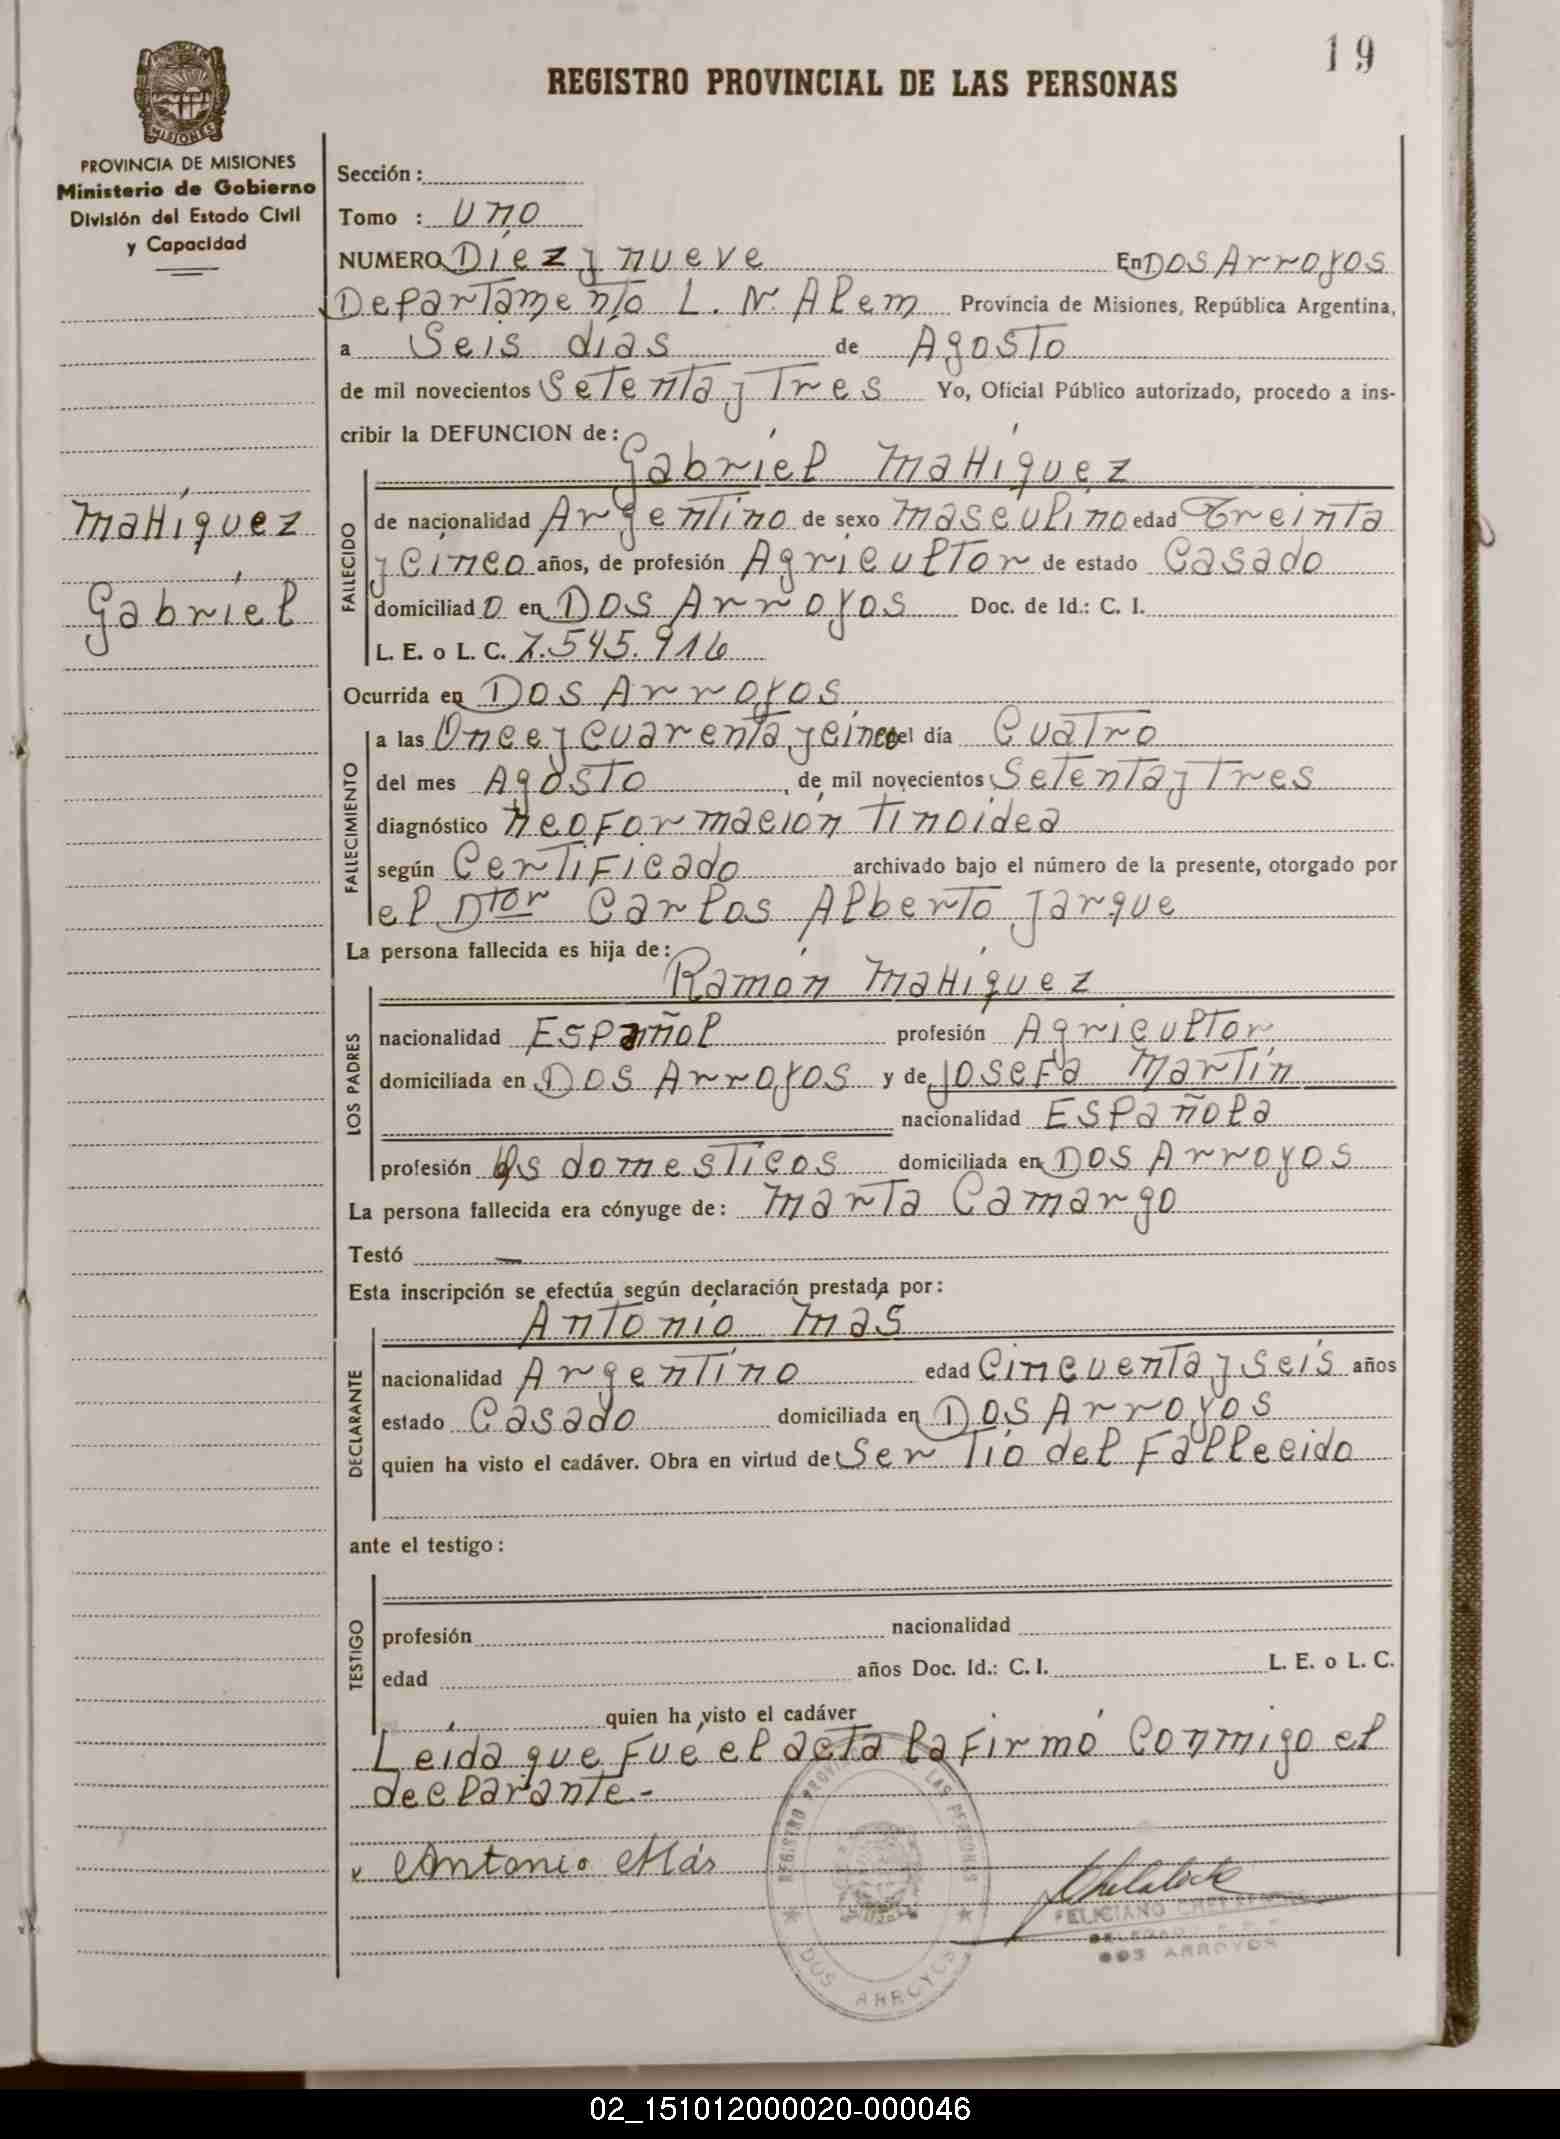 19
REGISTRO PROVINCIAL DE LAS PERSONAS
MISIONES
PROVINCIA DE MISIONES
Ministerio de Gobierno
División del Estado Civil
y Capacidad
Sección :
Tomo : Uno
NUMERO Díez y nueve En Dos Arroyos
Departamento L. N. Alem Provincia de Misiones, República Argentina,
a Seis días de Agosto
de mil novecientos Setenta y Tres Yo, Oficial Público autorizado, procedo a ins-
cribir la DEFUNCION de :
Gabríel Mahíquez
Mahíquez
Gabríel
FALLECIDO
de nacionalidad Argentino de sexo Masculino edad Treinta
y Cinco años, de profesión Agricultor de estado Casado
domiciliado en Dos Arroyos Doc. de Id.: C. I.
L. E. o L. C. 7.545.916
Ocurrida en Dos Arroyos
FALLECIMIENTO
a las Once y Cuarenta y cinco del día Cuatro
del mes Agosto , de mil novecientos Setenta y Tres
diagnóstico Neoformación Tinoidea
según Certificado archivado bajo el número de la presente, otorgado por
el Dtor Carlos Alberto Jarque
La persona fallecida es hija de :
LOS PADRES
Ramón Mahíquez
nacionalidad Español profesión Agricultor
domiciliada en Dos Arroyos y de Josefa Martín
nacionalidad Española
profesión Qs domesticos domiciliada en Dos Arroyos
La persona fallecida era cónyuge de : Marta Camargo
Testó —
Esta inscripción se efectúa según declaración prestada por :
DECLARANTE
Antonio Mas
nacionalidad Argentino edad Cincuenta y seis años
estado Casado domiciliada en Dos Arroyos
quien ha visto el cadáver. Obra en virtud de Ser Tío del Fallecido
ante el testigo :
TESTIGO
profesión nacionalidad
edad años Doc. Id.: C. I. L. E. o L. C.
quien ha visto el cadáver
Leída que Fué el acta la Firmó Conmigo el
declarante.-
Antonio Más
REGISTRO PROVINCIAL DE LAS PERSONAS
DOS ARROYOS
FELICIANO
DOS ARROYOS
02_151012000020-000046